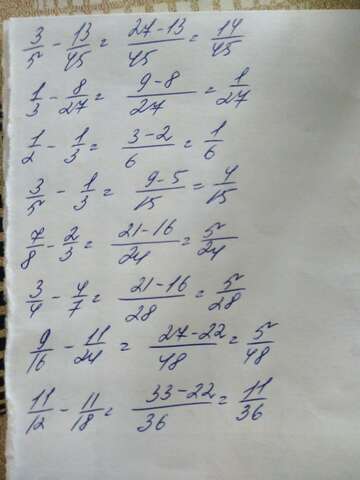 3/5 - 13/45 = 27-13/45 = 14/45
1/3 - 8/27 = 9-8/27 = 1/27
1/2 - 1/3 = 3-2/6 = 1/6
3/5 - 1/3 = 9-5/15 = 4/15
7/8 - 2/3 = 21-16/24 = 5/24
3/4 - 4/7 = 21-16/28 = 5/28
9/16 - 11/24 = 27-22/48 = 5/48
11/12 - 11/18 = 33-22/36 = 11/36